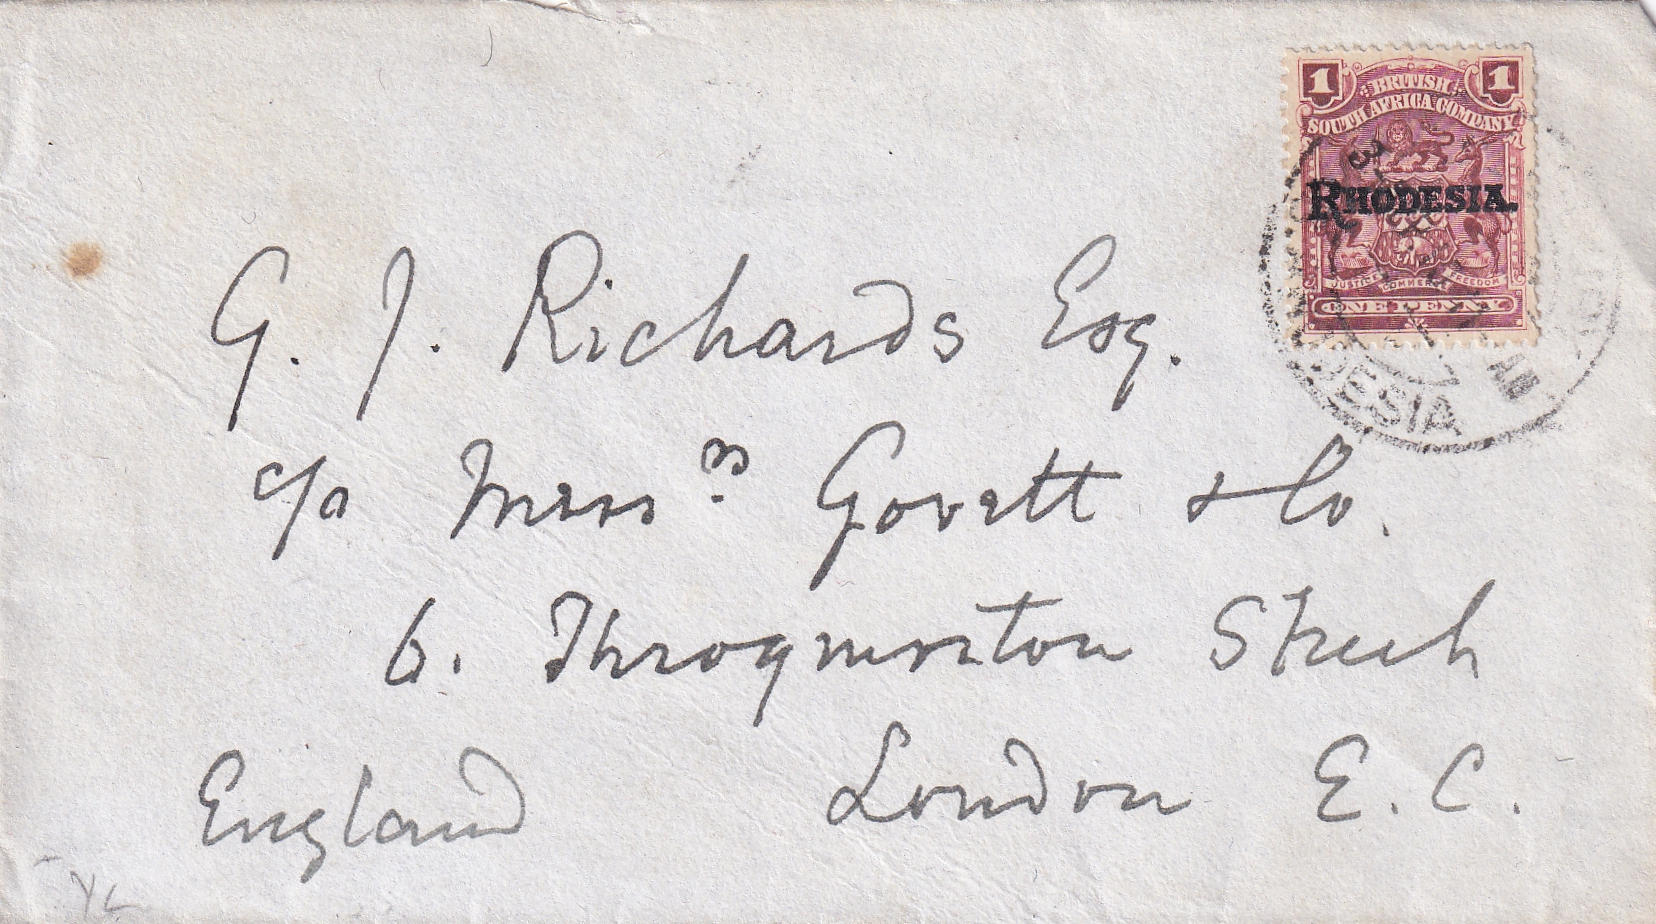 1 BRITISH 1
SOUTH AFRICA COMPANY
RHODESIA.
JUSTICE COMMERCE FREEDOM
ONE PENNY
AM
G. J. Richards Esq.
c/o Messrs Govett & Co.
6. Throgmorton Street
London E. C.
England